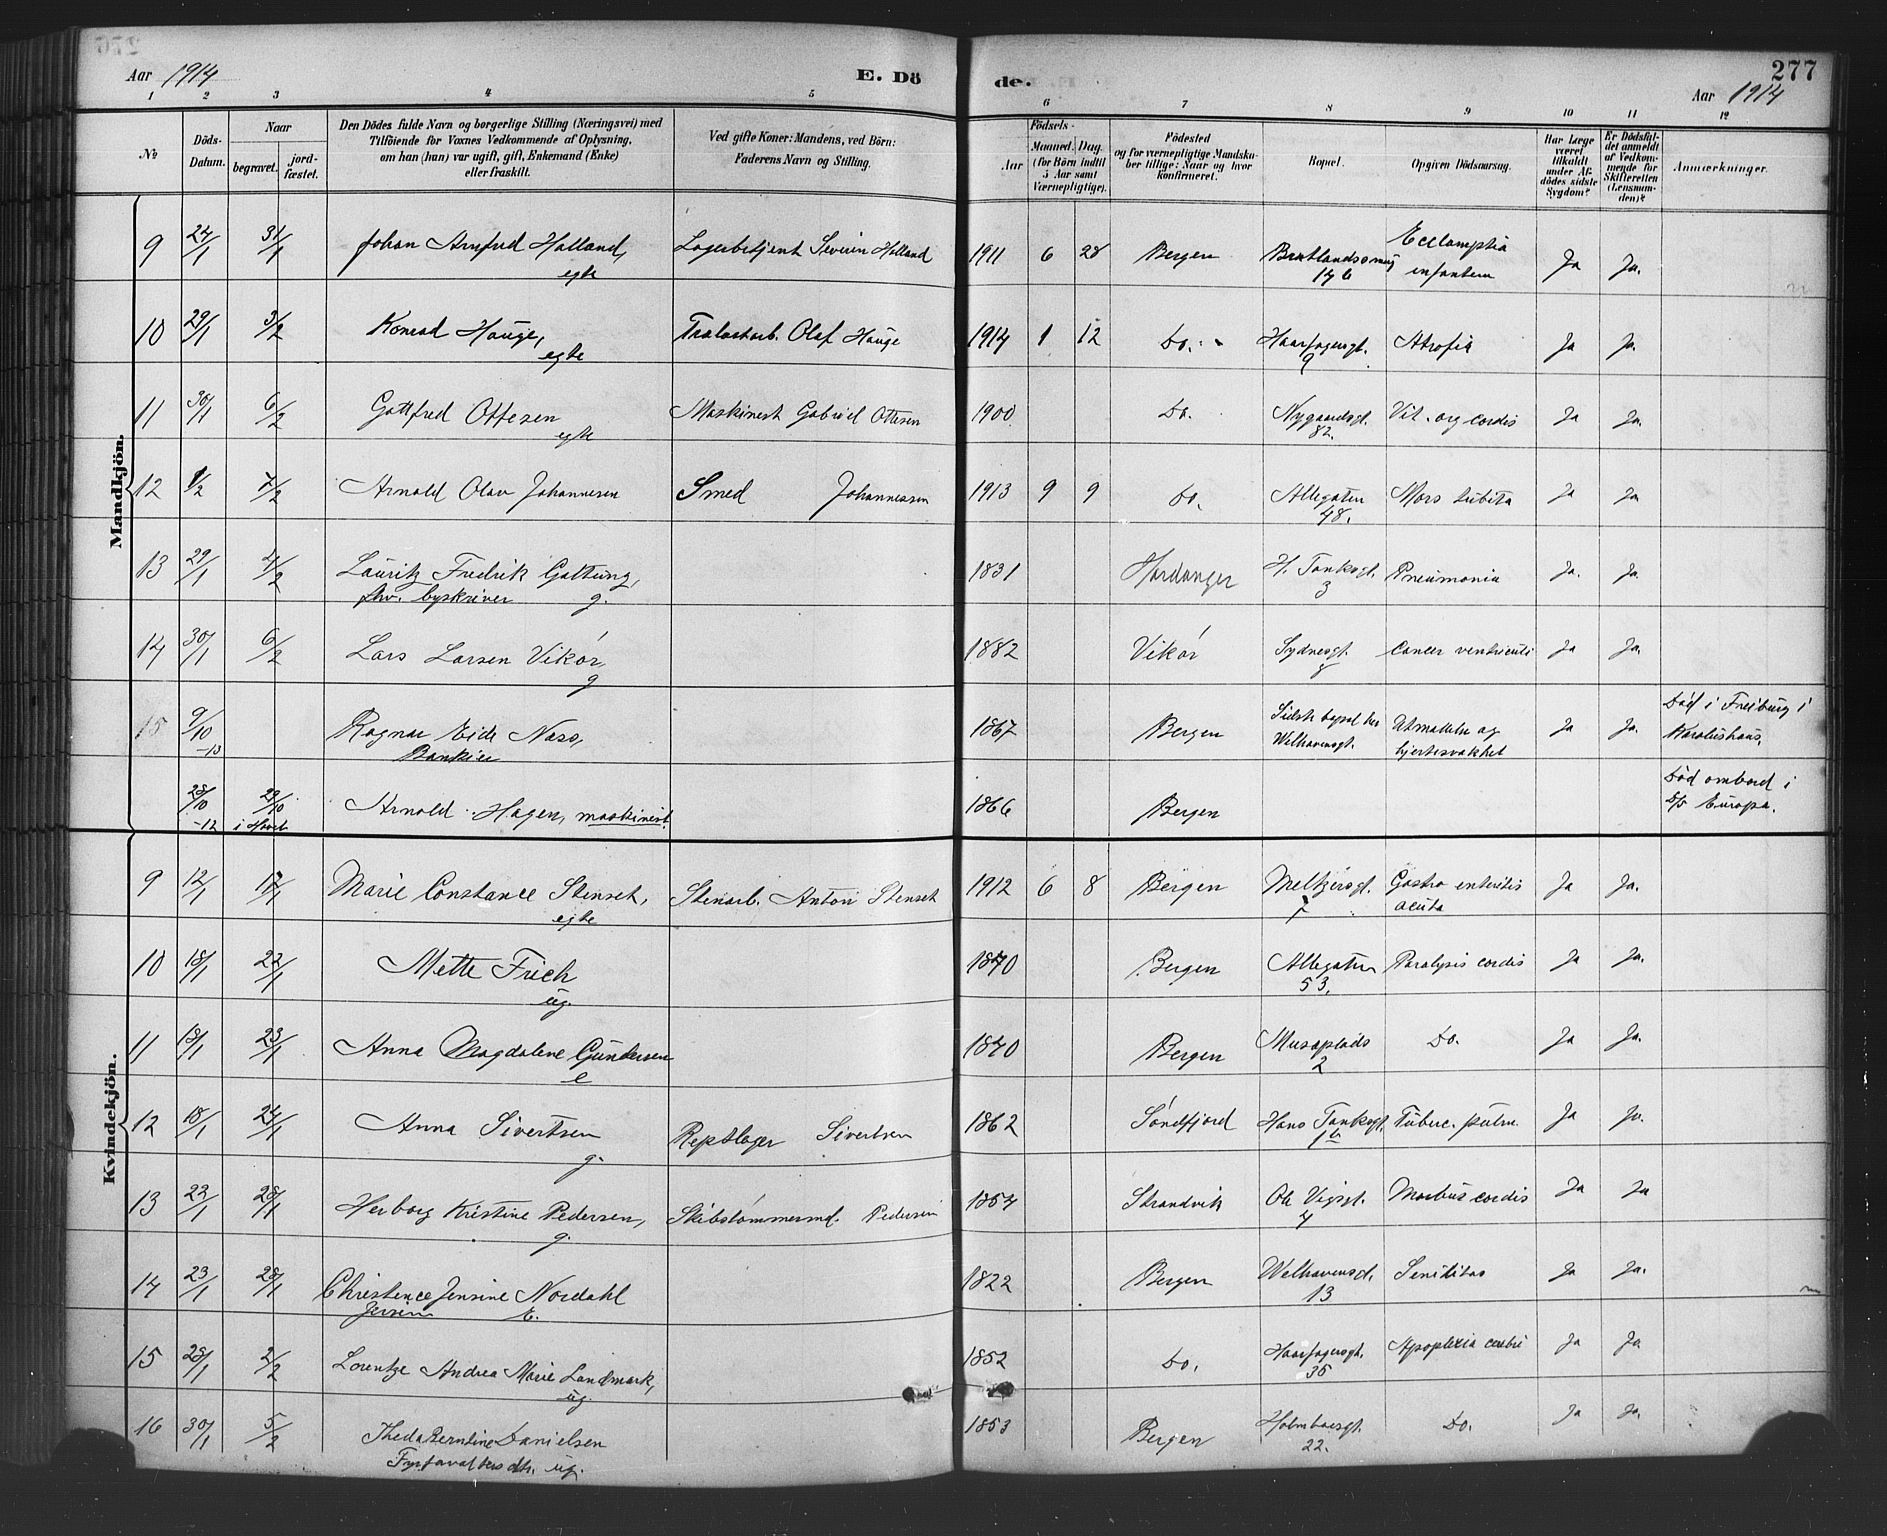 Aar 1914
E. Dö
de.
277
Aar 1914
1 2 3 4 5 6 7 8 9 10 11 12
No
Döds-Datum.
Naar
begravet.
jord-fæstet.
Den Dödes fulde Navn og borgerlige Stilling (Næringsvei) med
Tilföiende for Voxnes Vedkommende af Oplysning,
om han (hun) var ugift, gift, Enkemand (Enke)
eller fraskilt.
Ved gifte Koner: Mandens, ved Börn:
Faderens Navn og Stilling.
Födsels-
Aar
Maaned. Dag.
(for Börn indtil
5 Aar samt
Værnepligtige).
Födested
og for værnepligtige Mandskaber tillige: Naar og hvor
konfirmeret.
Bopæl.
Opgiven Dödsaarsag.
Har Læge
været
tilkaldt
under Afdödes sidste
Sygdom?
Er Dödsfaldet anmeldt
af Vedkommende for
Skifteretten
(Lensmanden)?
Anmærkninger.
Mandkjön.
9 24/1 31/1 Johan Arnfred Holland, Lagerbetjent Severin Holland 1911 6 28 Bergen 146 Eclampsia Ja Ja.
egte infantum
10 29/1 3/2 Konrad Hauge, Olaf Hauge 1914 1 12 Do. Haarfagersgt. Atrofia Ja Ja.
egte 9
11 30/1 6/2 Gottfred Ottesen Maskinest Gabriel Ottesen 1900 Do. Nygaardsgt. Vit. org cordis Ja Ja.
egte 82.
12 1/2 7/2 Arnold Olav Johannesen Smed Johannessen 1913 9 9 Do. Allegaten Mors subita Ja Ja
48.
13 29/1 4/2 Lauritz Fredrik Galtung, 1831 Hardanger H. Tanksgt. Pneumonia Ja. Ja.
fhv. byskriver g. 3
14 30/1 6/2 Lars Larsen Vikør, 1882 Vikør Sydnesgt. Cancer ventriculi Ja Ja.
g 8
15 9/10 -13 Ragnar Eide Næss, 1867 Bergen Sidste bopæl her Utmattelse og Ja Ja. Död i Freiburg i
Bankier Welhavensgt. hjertesvakhet
28/10 -12 29/10 i Havet Arnold Hagen, maskinist. 1866 Bergen Död ombord i
D/S Europa.
Kvindekjön.
9 12/1 17/1 Marie Constance Stenset, Stenarb. Anton Stenset 1912 6 8 Bergen Meltzersgt. Gastro enteritis Ja Ja.
egte 7 acuta
10 18/1 22/1 Mette Frich 1840 Bergen Allegaten Paralysis cordis Ja Ja.
ug. 53.
11 18/1 23/1 Anna Magdalene Gundersen 1840 Bergen Musæplads Do. Ja Ja.
e 2
12 18/1 24/1 Anna Sivertsen Repslager Sivertsen 1862 Söndfjord Hans Tanksgt. Tuberc. pulm. Ja Ja.
g.
13 22/1 28/1 Herborg Kristine Pedersen, Skibstömmermd. Pedersen 1854 Strandvik Ole Vigsgt. Morbus cordis Ja Ja
g. 4
14 23/1 28/1 Christence Jensine Nordahl 1822 Bergen Welhavensgt. Senilitas Ja Ja.
E. 13
15 28/1 2/2 Lorentze Andrea Marie Landmark, 1852 Do. Haarfagersgt. Apoplexia cerebri Ja Ja
ug. 35
16 30/1 5/2 Theda Berntine Danielsen 1853 Bergen Holmboesgt. Do. Ja Ja.
ug. 22.